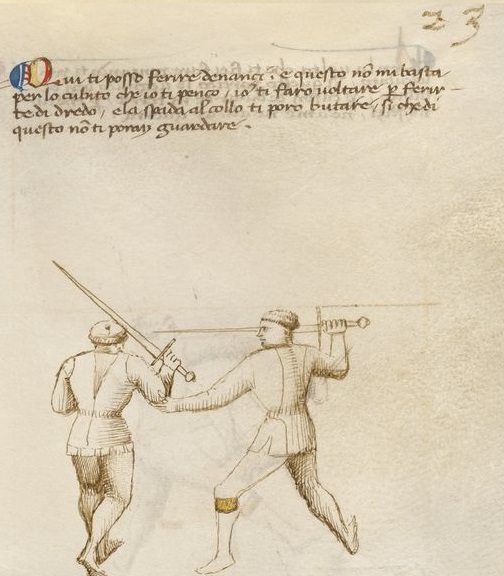 23
Qui ti posso ferire denançi · e questo nō mi basta ·
per lo cubito che io ti penço / io ti faro voltare p ferir–
te di dredo / e la spada al collo ti poro butare / si che di
questo nō ti poray guardare ·